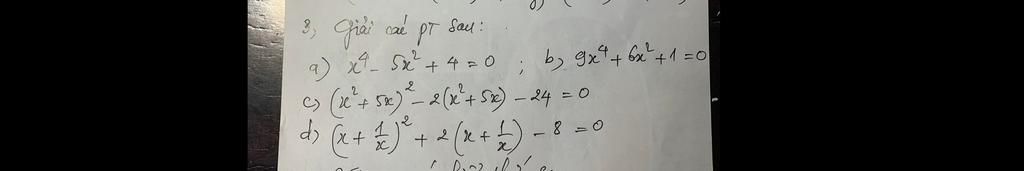 3, Giải các PT sau:
a) x⁴ - 5x² + 4 = 0 ; b, 9x⁴ + 6x² + 1 = 0
c) (x² + 5x)² - 2(x² + 5x) - 24 = 0
d) (x + 1/x)² + 2(x + 1/x) - 8 = 0